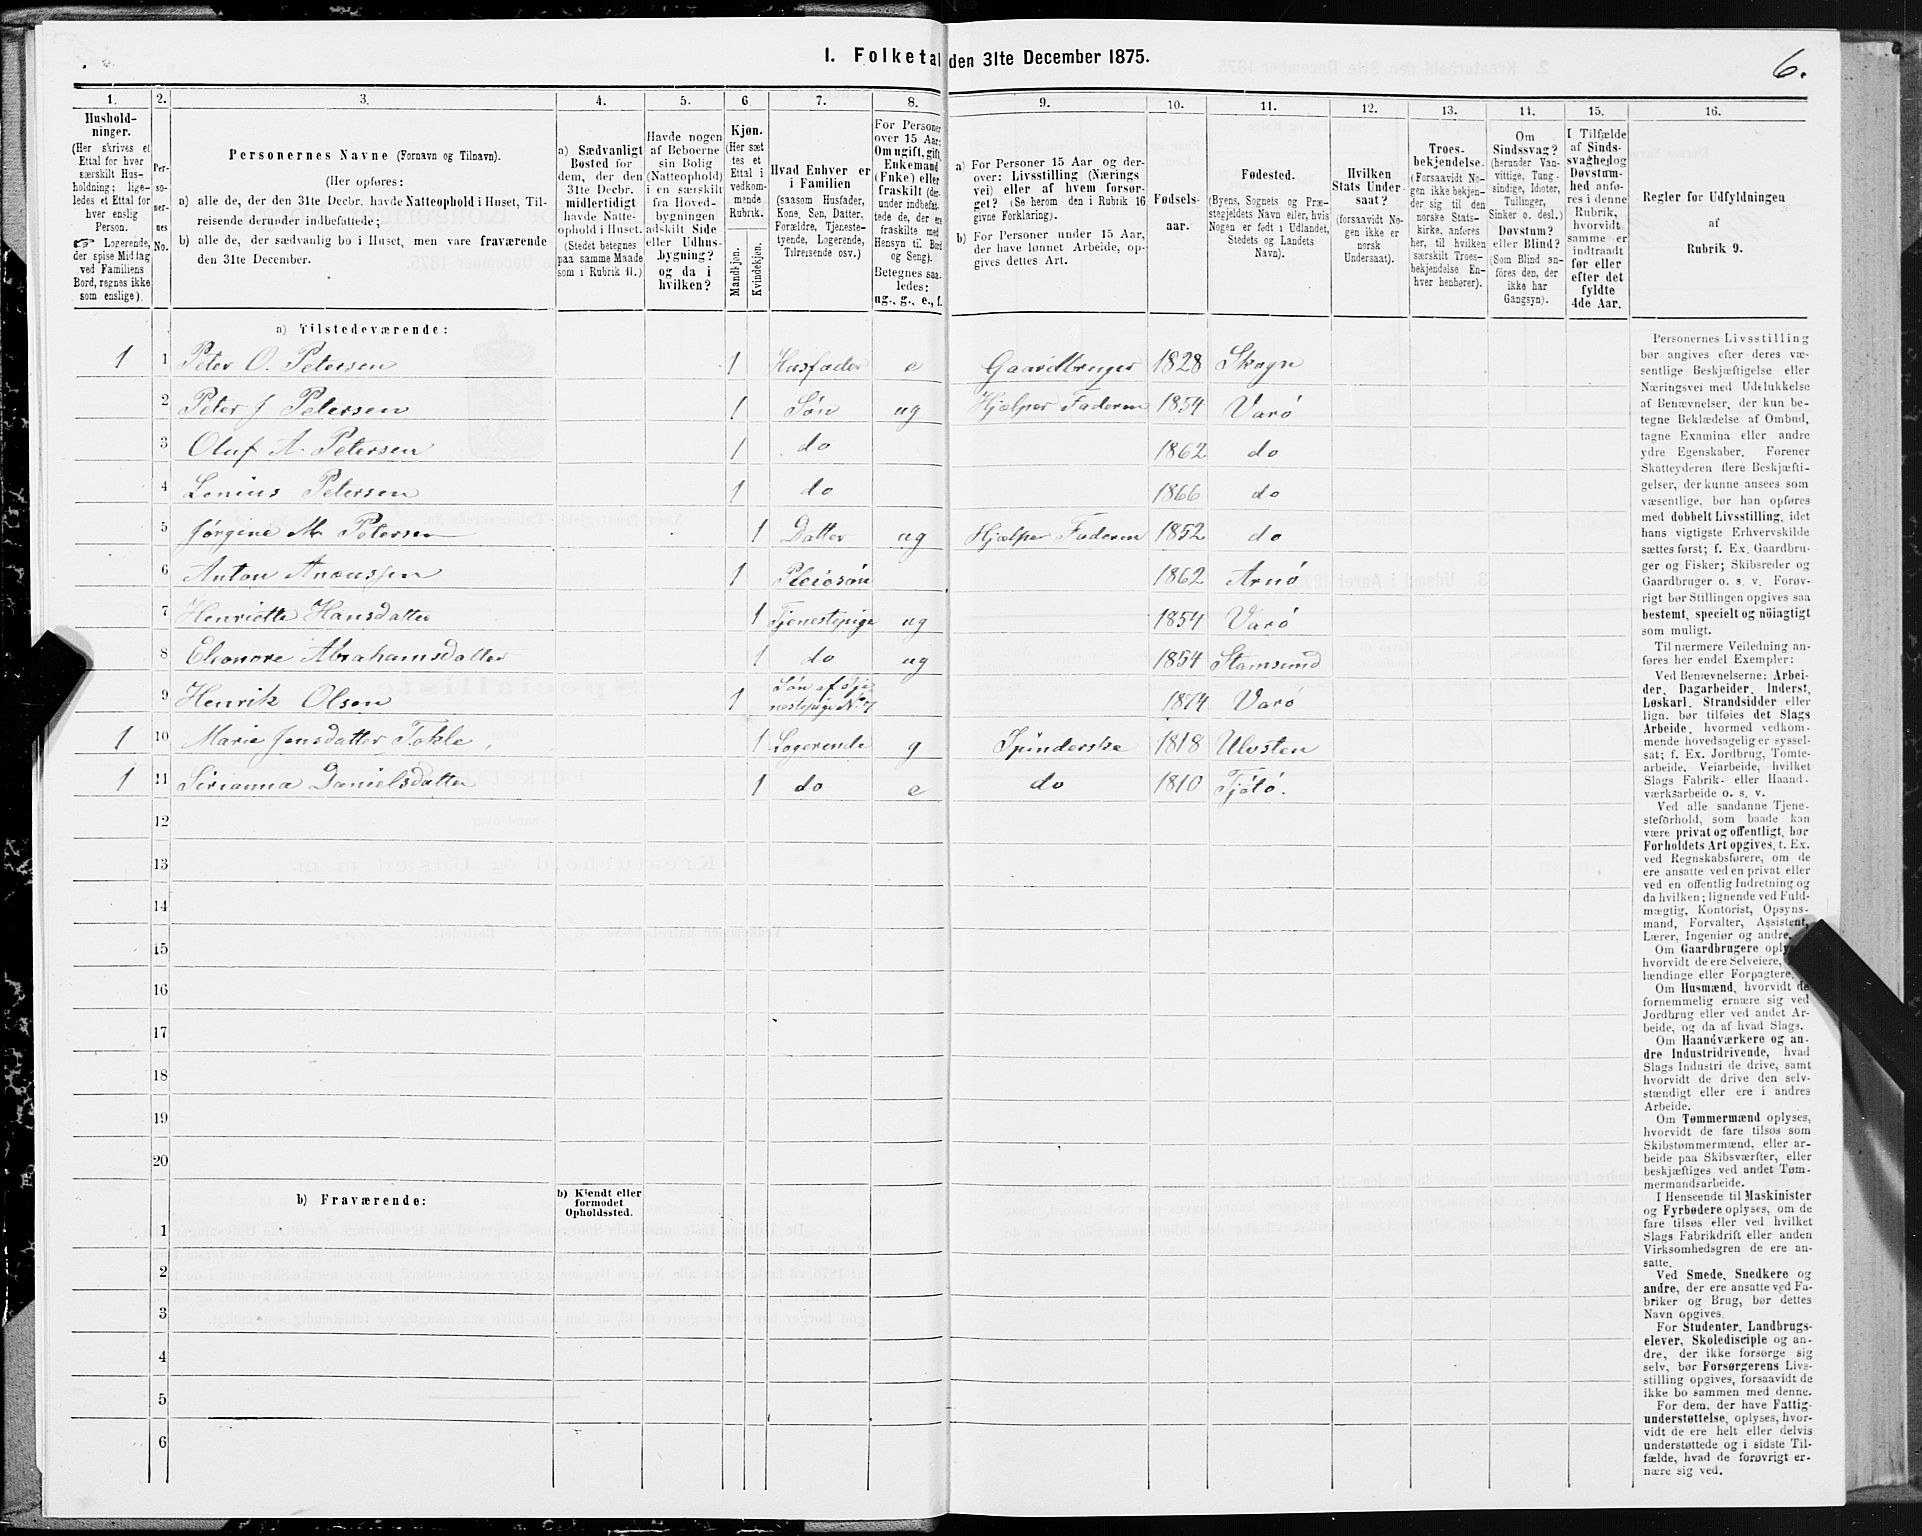 I. Folketal den 31te December 1875.
6.
1.
2.
3.
4.
5.
6.
7.
8.
9.
10.
11.
12.
13.
14.
15.
16.
Hushold-
ninger.
(Her skrives et
Ettal for hver
særskilt Hus-
holdning; lige-
ledes et Ettal for
hver enslig
Person.
☞ Logerende,
der spise Middag
ved Familiens
Bord, regnes ikke
som enslige).
Per-
so-
ner-
nes
No.
Personernes Navne (Fornavn og Tilnavn).
(Her opføres:
a) alle de, der den 31te Decbr. havde Natteophold i Huset, Til-
reisende derunder indbefattede;
b) alle de, der sædvanlig bo i Huset, men vare fraværende
den 31te December.
a) Sædvanligt
Bosted for
dem, der den
31te Decbr.
midlertidigt
havde Natte-
ophold i Huset.
(Stedet betegnes
paa samme Maade
som i Rubrik 11.)
Havde nogen
af Beboerne
sin Bolig
(Natteophold)
i en særskilt
fra Hoved-
bygningen
adskilt Side
eller Udhus-
bygning?
og da i
hvilken?
Kjøn.
(Her sæt
tes et
Ettal i
vedkom-
mende
Rubrik.
Mandkjøn.
Kvindekjøn.
Hvad Enhver er
i Familien
(saasom Husfader,
Kone, Søn, Datter,
Forældre, Tjeneste-
tyende, Logerende,
Tilreisende osv.)
For Personer
over 15 Aar:
Om ugift, gift,
Enkemand
(Enke) eller
fraskilt (der-
under indbefat-
tede de, der ere
fraskilte med
Hensyn til Bord
og Seng).
Betegnes saa-
ledes:
ug., g., e., f.
a) For Personer 15 Aar og der-
over: Livsstilling (Nærings
vei) eller af hvem forsør-
get? (Se herom den i Rubrik 16
givne Forklaring).
b) For Personer under 15 Aar,
der have lønnet Arbeide, op-
gives dettes Art.
Fødsels-
aar.
Fødested.
(Byens, Sognets og Præ-
stegjeldets Navn eller, hvis
Nogen er født i Udlandet,
Stedets og Landets
Navn).
Hvilken
Stats Under-
saat?
(forsaavidt No-
gen ikke er
norsk
Undersaat).
Troes-
bekjendelse.
(Forsaavidt No-
gen ikke bekjen-
der sig til den
norske Stats-
kirke, anføres
her, til hvilken
særskilt Troes-
bekjendelse En-
hver henhører).
Om
Sindssvag?
(herunder Van-
vittige, Tung-
sindige, Idioter,
Tullinger,
Sinker o. desl.)
Døvstum?
eller Blind?
(Som Blind an-
føres den, der
ikke har
Gangsyn).
I Tilfælde
af Sinds-
svaghed og
Døvstum-
hed anfø-
res i denne
Rubrik,
hvorvidt
samme er
indtraadt
før eller
efter det
fyldte
4de Aar.
Regler for Udfyldningen
af
Rubrik 9.
a) Tilstedeværende:
1 1 Peter O. Petersen 1 Husfader e Gaardbruger 1828 Skogn
2 Peter J Petersen 1 Søn ug Hjælper Faderen 1854 Varø
3 Oluf A. Petersen 1 do 1862 do
4 Lenius Petersen 1 do 1866 do
5 Jørgine M. Petersen 1 Datter ug Hjælper Faderen 1852 do
6 Anton 1 Pleiesøn 1862 Arnø
7 Henriette Hansdatter 1 Tjenestepige ug 1854 Varø
8 Eleonore Abrahamsdatter 1 do ug 1854 Stamsund
9 Henrik Olsen 1 Søn af Tje-
nestepige No. 7 1874 Varø
1 10 Marie Jensdatter Tokle, 1 Logerende g Spinderske 1818 Ulvsten
1 11 Sirianna Danielsdatter 1 do e do 1810 Tjøtø.
12
13
14
15
16
17
18
19
20
b) Fraværende:
b) Kjendt eller
formodet
Opholdssted.
1
2
3
4
5
6
Personernes Livsstilling
bør angives efter deres væ-
sentlige Beskjæftigelse eller
Næringsvei med Udelukkelse
af Benævnelser, der kun be-
tegne Beklædelse af Ombud,
tagne Examina eller andre
ydre Egenskaber. Forener
Skatteyderen flere Beskjæfti-
gelser, der kunne ansees som
væsentlige, bør han opføres
med dobbelt Livsstilling, idet
hans vigtigste Erhvervskilde
sættes først; f. Ex. Gaardbru-
ger og Fisker; Skibsreder og
Gaardbruger o. s. v. Forøv-
rigt bør Stillingen opgives saa
bestemt, specielt og nöiagtigt
som muligt.
Til nærmere Veiledning an-
føres her endel Exempler:
Ved Benævnelserne: Arbei-
der, Dagarbeider, Inderst,
Løskarl, Strandsidder eller
lign. bør tilføies det Slags
Arbeide, hvormed vedkom-
mende hovedsagelig er syssel-
sat; f. Ex. Jordbrug, Tomte-
arbeide, Veiarbeide, hvilket
Slags Fabrik- eller Haand-
værksarbeide o. s. v.
Ved alle saadanne Tjene-
steforhold, som baade kan
være privat og offentligt, bør
Forholdets Art opgives, t. Ex.
ved Regnskabsførere, om de
ere ansatte ved en privat eller
ved en offentlig Indretning og
da hvilken; lignende ved Fuld-
mægtig, Kontorist, Opsyns-
mand, Forvalter, Assistent,
Lærer, Ingeniør og andre.
Om Gaardbrugere
hvorvidt de ere Selveiere,
lændinge eller Forpagtere.
Om Husmænd, hvorvidt de
fornemmelig ernære sig ved
Jordbrug eller ved andet Ar-
beide, og da af hvad Slags.
Om Haandværkere og an-
dre Industridrivende, hvad
Slags Industri de drive, samt
hvorvidt de drive den selv-
stændigt eller ere i andres
Arbeide.
Om Tømmermænd oplyses,
hvorvidt de fare tilsøs som
Skibstømmermænd, eller ar-
beide paa Skibsværfter, eller
beskjæftiges ved andet Tøm-
mermandsarbeide.
I Henseende til Maskinister
og Fyrbødere, oplyses, om de
fare tilsøs eller ved hvilket
Slags Fabrikdrift eller anden
Virksomhedsgren de ere an-
satte.
Ved Smede, Snedkere og
andre, der ere ansatte ved Fa-
briker og Brug, bør dettes
Navn opgives.
For Studenter, Landbrugs-
elever, Skoledisciple og an-
dre, der ikke forsørge sig
selv, bør Forsørgerens Livs-
stilling opgives, forsaavidt de
ikke bo sammen med denne.
For dem, der have Fattig-
understøttelse, oplyses, hvor-
vidt de ere helt eller delvis
understøttede og i sidste Til-
fælde, hvad de forøvrigt er-
nære sig ved.